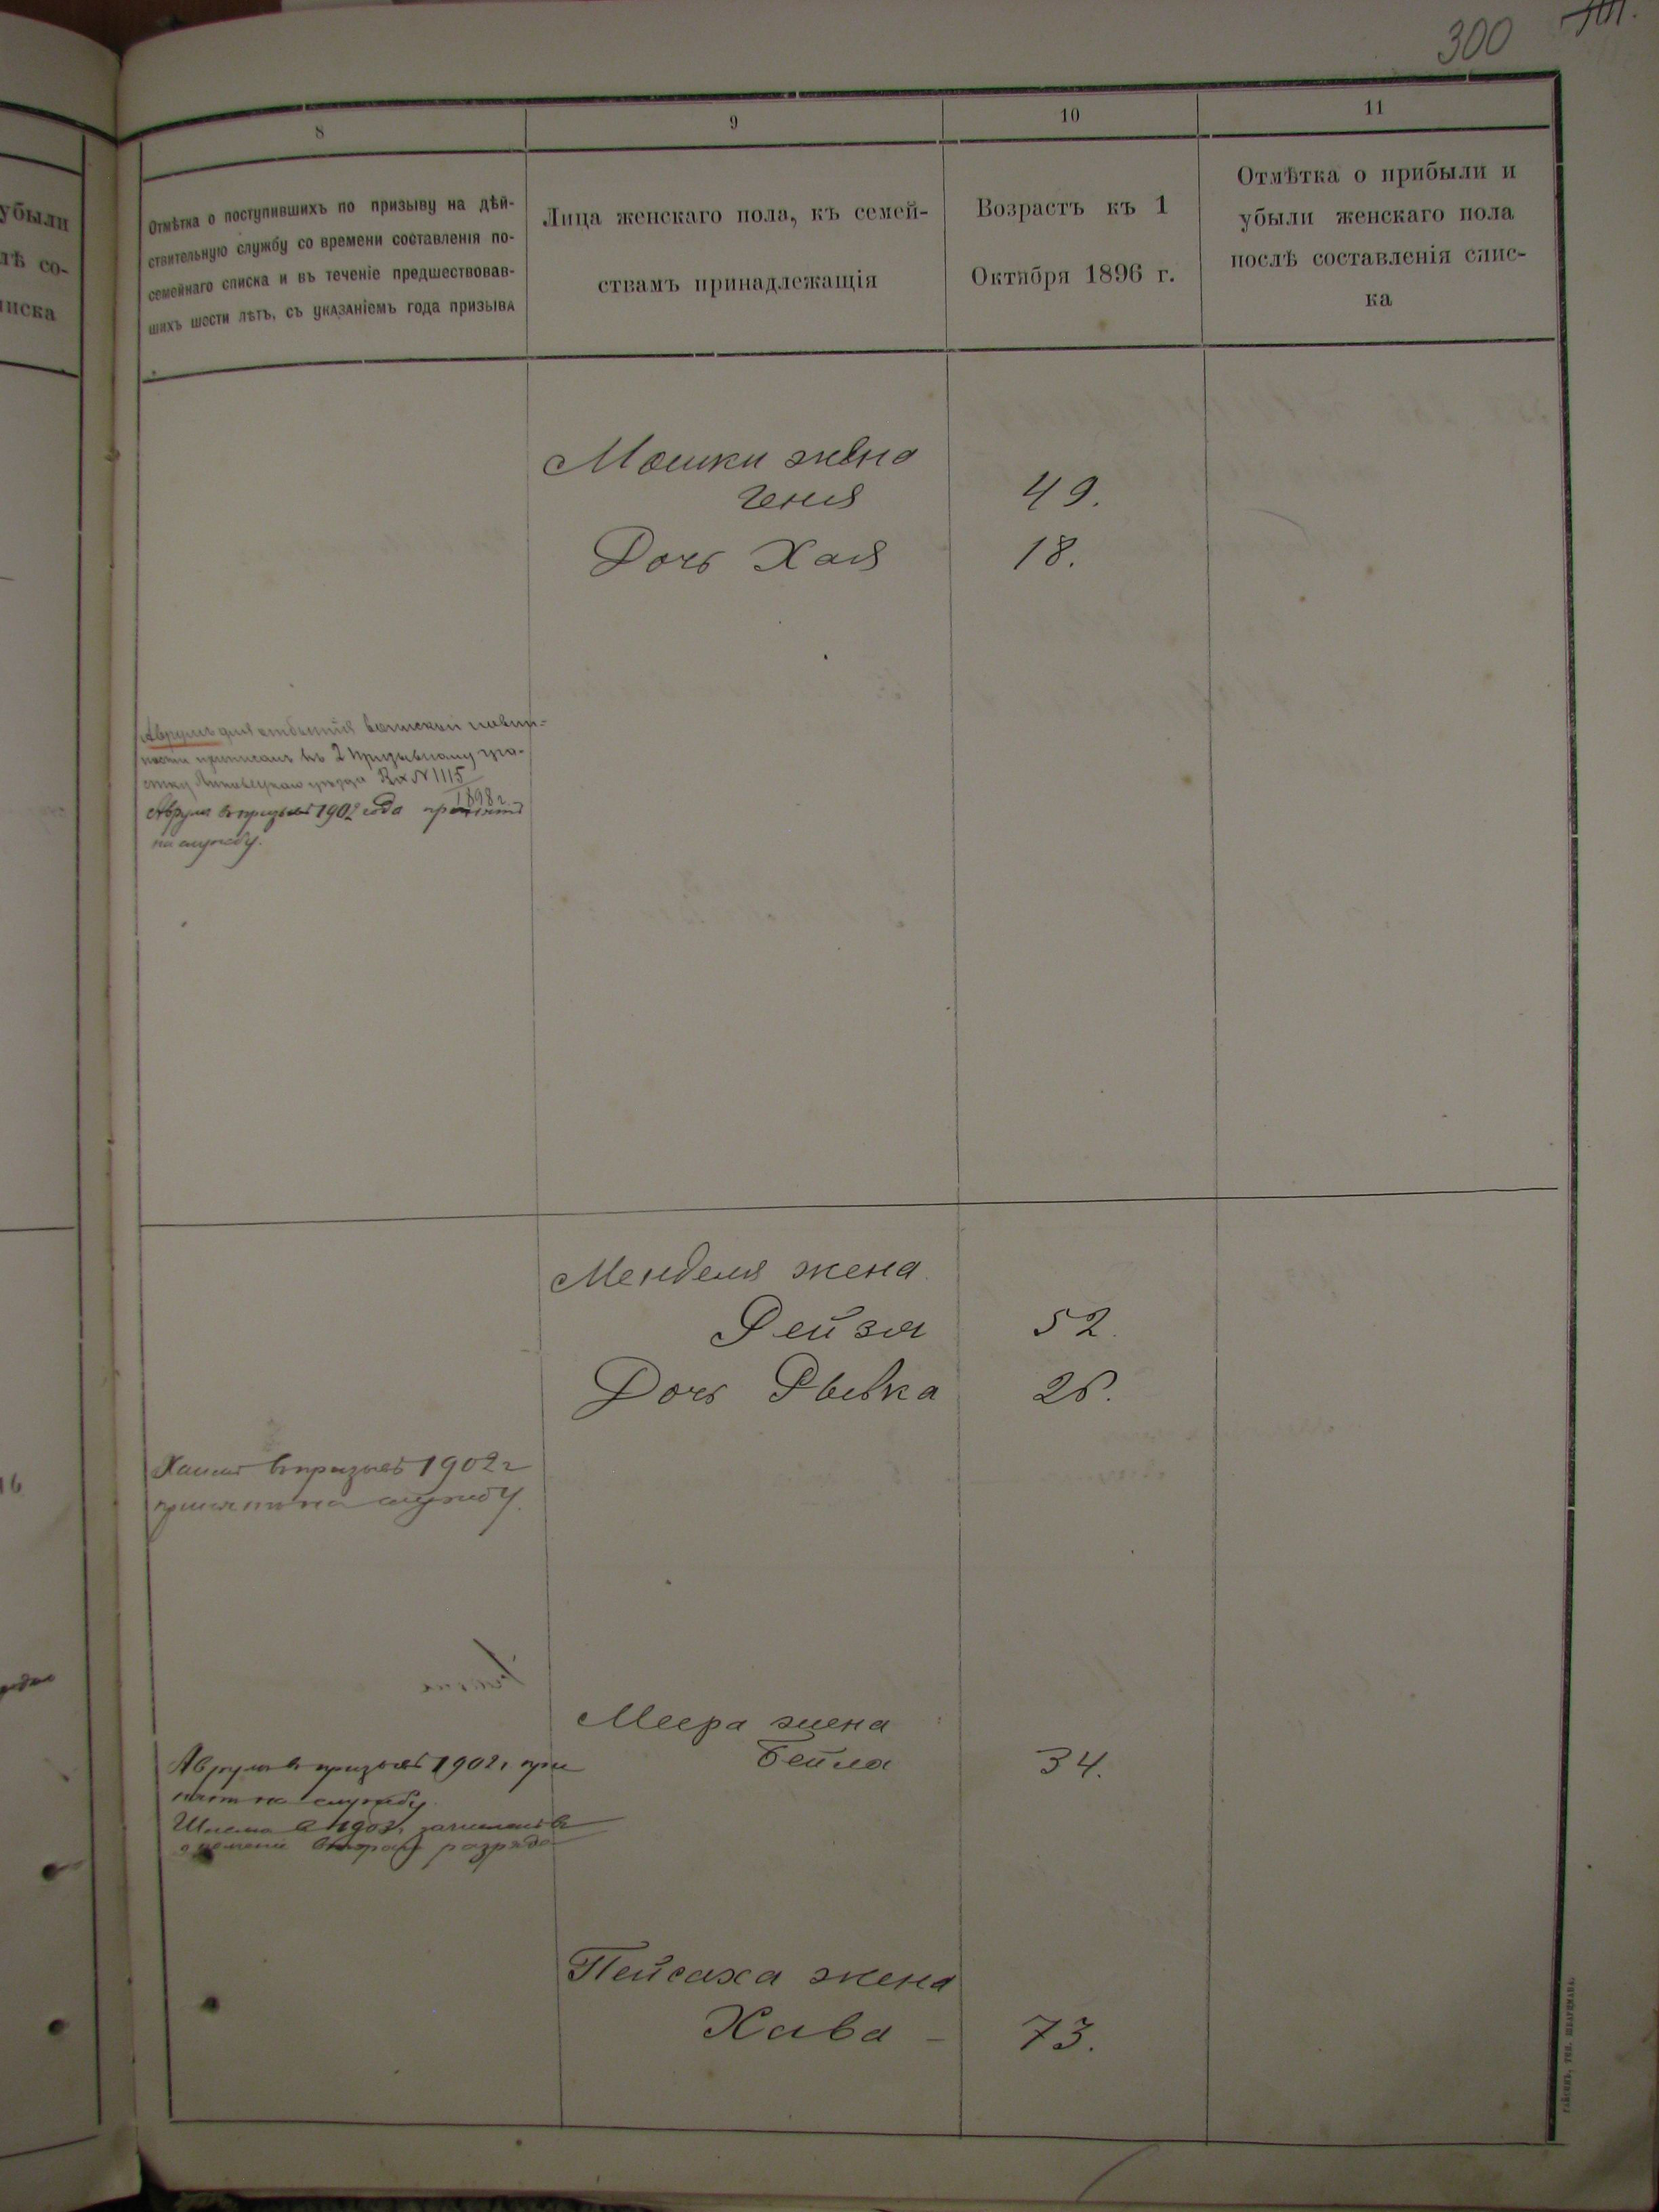 300
8
9
10
11
убыли
лѣ со-
иска
Отмѣтка о поступившихъ по призыву на дѣй-
ствительную службу со времени составленія по-
семейнаго списка и въ теченіе предшествовав-
шихъ шести лѣтъ, съ указаніемъ года призыва
Лица женскаго пола, къ семей-
ствамъ принадлежащія
Возрастъ къ 1
Октября 1896 г.
Отмѣтка о прибыли и
убыли женскаго пола
послѣ составленія спис-
ка
Мошки жена
Геня 49.
Дочь Хая 18.
Аврумъ для отбытія воинской повин-
ности приписанъ къ 2 призывному уча-
стку уѣзда №1115
1898 г.
Аврумъ въ призывъ 1902 года принятъ
на службу.
Менделя жена
Рейзя 52.
Дочь Рывка 26.
въ призывъ 1902 г
принятъ на службу.
Меера жена
Бейла 34.
Аврумъ въ призывъ 1902 г при
нятъ на службу.
Шлема въ 1903 г зачисленъ въ
ополченіе второго разряда
Пейсаха жена
Хава - 73.